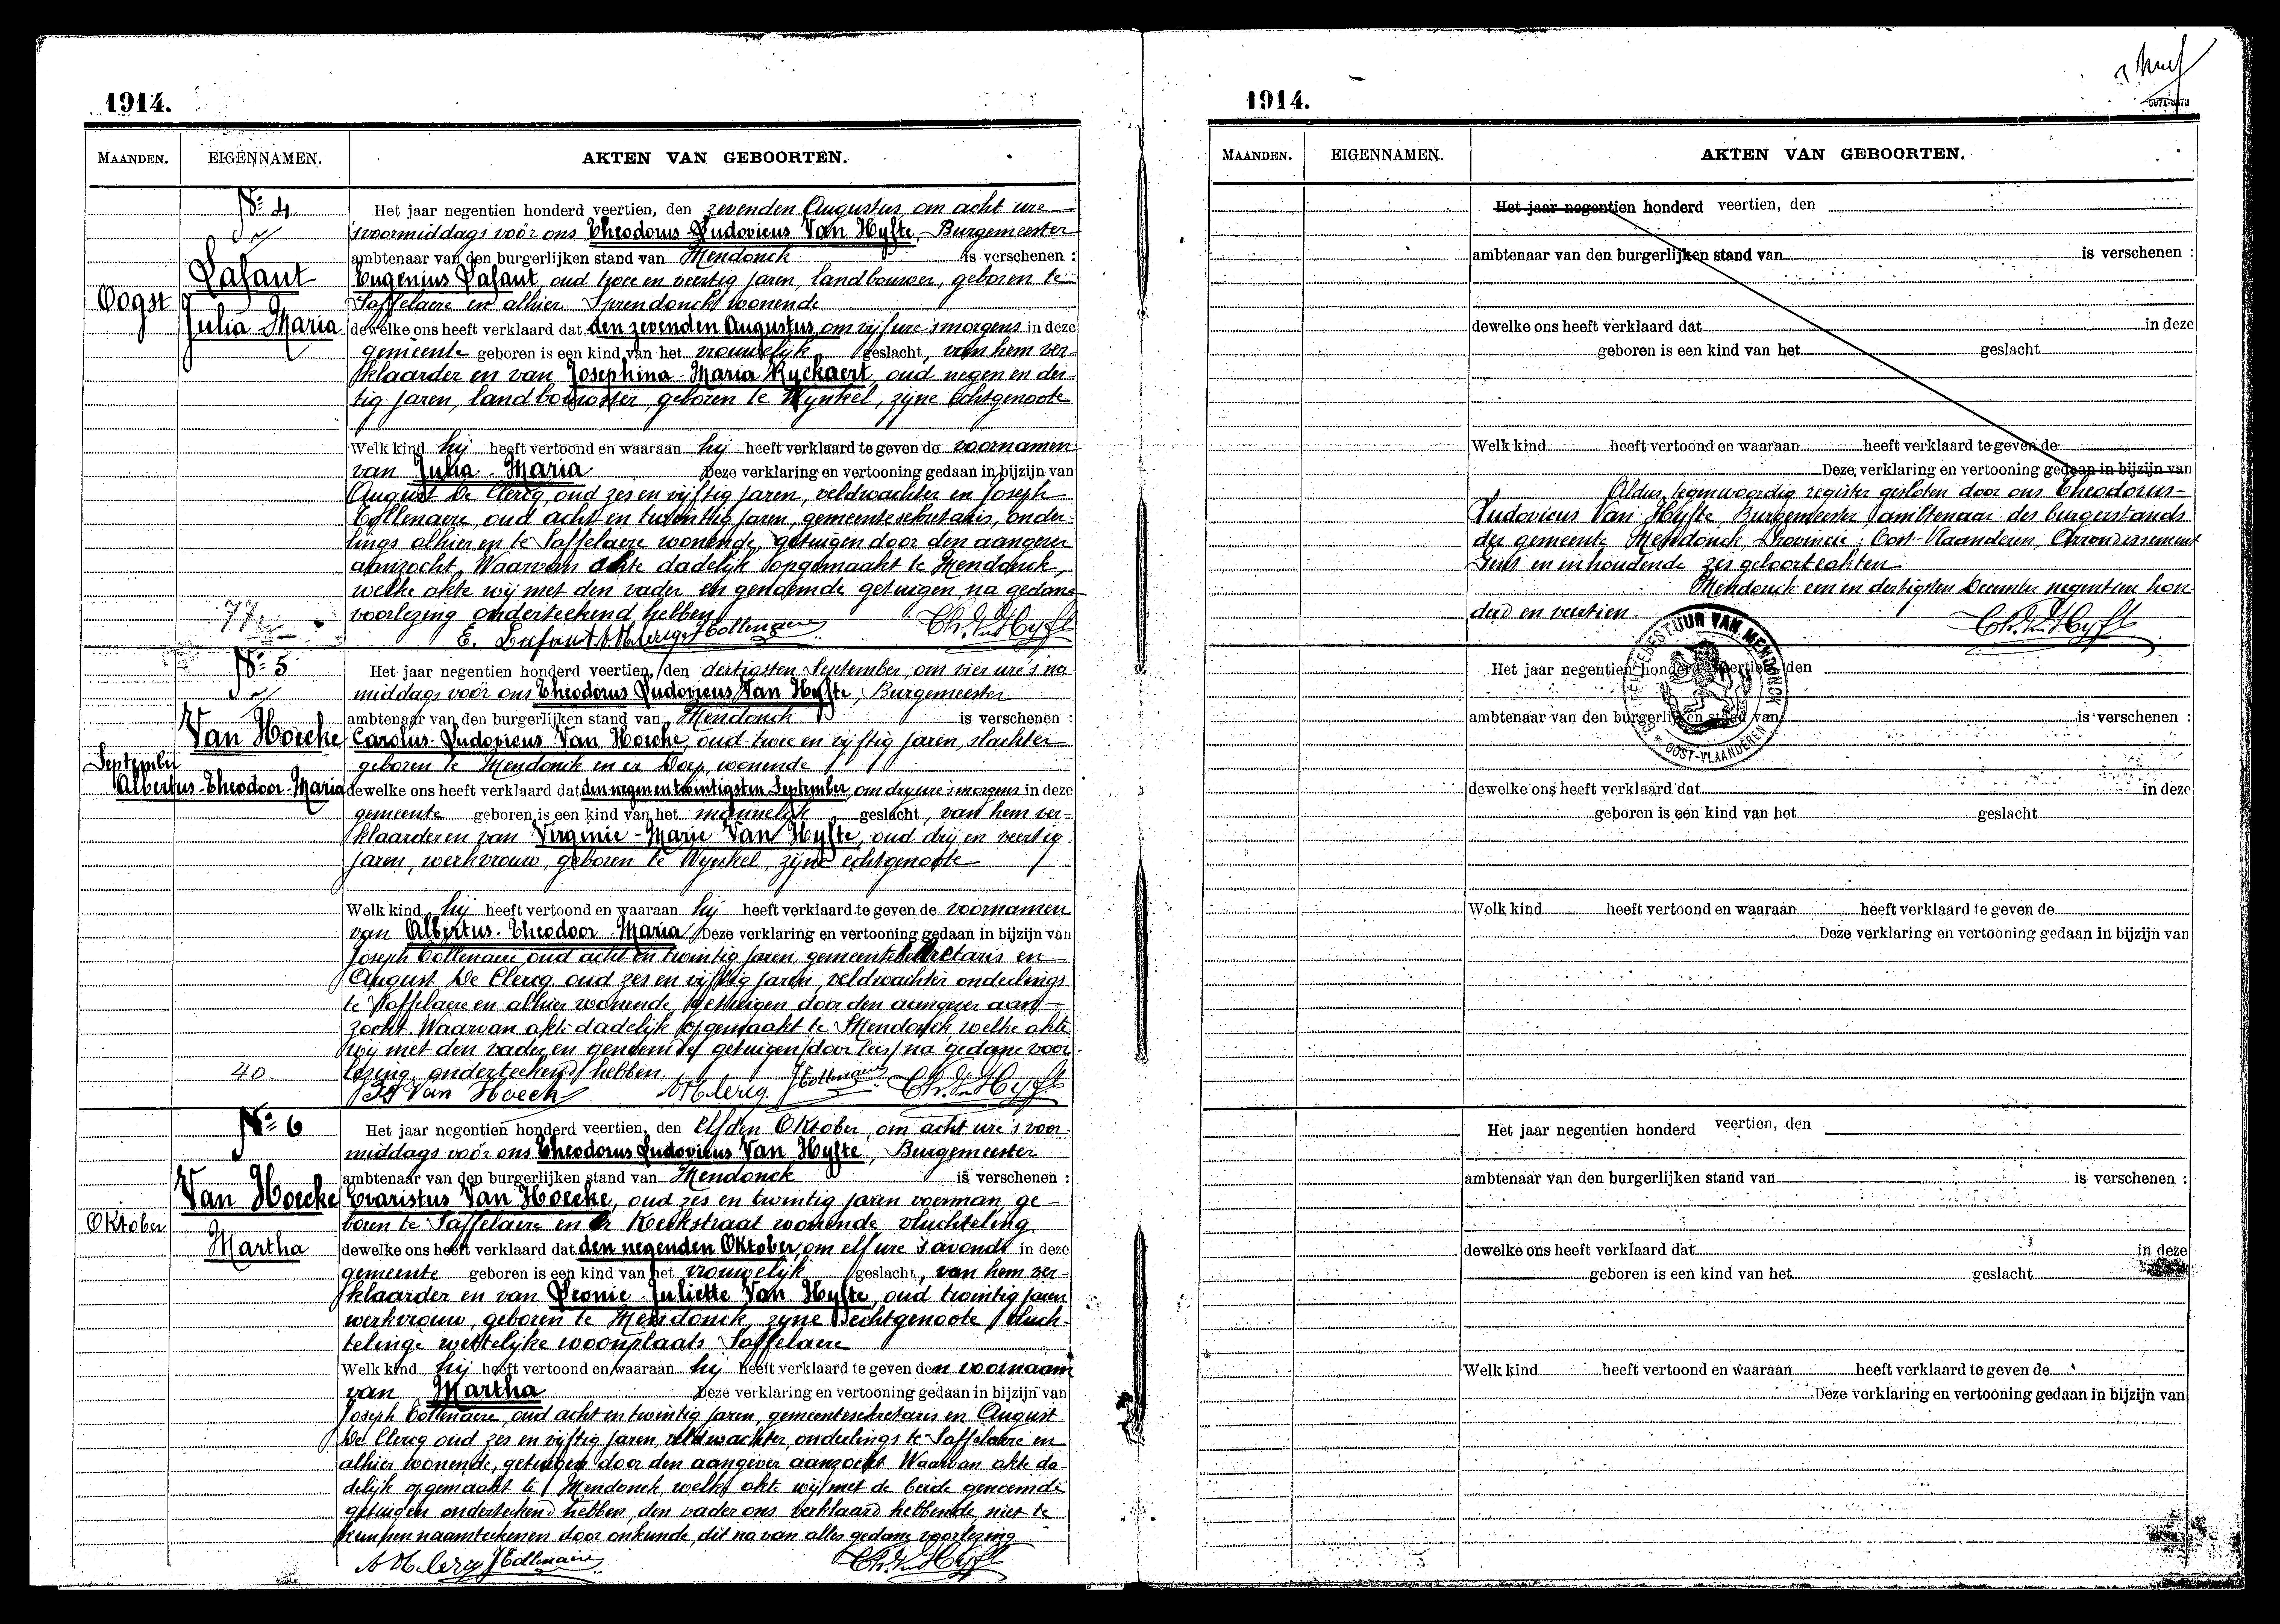 1914.
MAANDEN. EIGENNAMEN. AKTEN VAN GEBOORTEN.
Nº 4.
Lafaut
Oogst
Julia Maria
Het jaar negentien honderd veertien, den zevenden Augustus om acht ure
'svoormiddags voór ons Theodorus Ludovicus Van Hyfte, Burgemeester
ambtenaar van den burgerlijken stand van Mendonck is verschenen :
Eugenius Lafaut, oud twee en veertig jaren, landbouwer, geboren te
Saffelaere en alhier Sprendonck wonende
dewelke ons heeft verklaard dat den zevenden Augustus om vijf ure 's morgens in deze
gemeente geboren is een kind van het vrouwelijk geslacht, van hem ver-
klaarder en van Josephina-Maria Ryckaert, oud negen en der-
tig jaren, landbouwster, geboren te Wynkel, zijne echtgenoote
Welk kind hij heeft vertoond en waaraan hij heeft verklaard te geven de voornamen
van Julia-Maria Deze verklaring en vertooning gedaan in bijzijn van
August De Clercq, oud zes en vijftig jaren, veldwachter en Joseph
Collenaere, oud acht en twintig jaren, gemeentesekretaris, onder-
lings alhier en te Saffelaere wonende, getuigen door den aangever
aanzocht. Waarvan akte dadelijk opgemaakt te Mendonck,
welke akte wij met den vader en genoemde getuigen, na gedane
voorlezing onderteekend hebben
77
E. Lafaut A. De Clercq J Collenaere Th. Van Hyfte
Nº 5
Van Hoecke
September
Albertus-Theodoor-Maria
Het jaar negentien honderd veertien, den dertigsten September, om vier ure 's na
middags voór ons Theodorus Ludovicus Van Hyfte, Burgemeester
ambtenaar van den burgerlijken stand van Mendonck is verschenen :
Carolus-Ludovicus Van Hoecke, oud twee en vijftig jaren, slachter
geboren te Mendonck en er Dorp, wonende
dewelke ons heeft verklaard dat den negen en twintigsten September, om dry ure 's morgens in deze
gemeente geboren is een kind van het mannelijk geslacht, van hem ver-
klaarder en van Virginie-Marie Van Hyfte, oud drij en veertig
jaren, werkvrouw, geboren te Wynkel, zijne echtgenoote
Welk kind hij heeft vertoond en waaraan hij heeft verklaard te geven de voornamen
van Albertus-Theodoor-Maria Deze verklaring en vertooning gedaan in bijzijn van
Joseph Collenaere oud acht en twintig jaren, gemeentesekretaris en
August De Clercq oud zes en vijftig jaren, veldwachter onderlings
te Saffelaere en alhier wonende, getuigen door den aangever aan-
zocht. Waarvan akte dadelijk opgemaakt te Mendonck welke akte
wij met den vader en genoemde getuigen door leis na gedane voor-
lezing onderteekend hebben.
40.
Van Hoeck A. De Clercq. J Collenaere Th. Van Hyfte
Nº 6
Van Hoecke
Oktober
Martha
Het jaar negentien honderd veertien, den elfden Oktober, om acht ure 's voor-
middags voór ons Theodorus Ludovicus Van Hyfte, Burgemeester
ambtenaar van den burgerlijken stand van Mendonck is verschenen :
Evaristus Van Hoecke, oud zes en twintig jaren voerman, ge-
boren te Saffelaere en er Kerkstraat wonende vluchteling
dewelke ons heeft verklaard dat den negenden Oktober, om elf ure 's avonds in deze
gemeente geboren is een kind van het vrouwelijk geslacht, van hem ver-
klaarder en van Leonie-Juliette Van Hyfte, oud twintig jaren
werkvrouw, geboren te Mendonck, zijne echtgenoote vluch-
telinge wettelijke woonplaats Saffelaere
Welk kind hij heeft vertoond en waaraan hij heeft verklaard te geven den voornaam
van Martha Deze verklaring en vertooning gedaan in bijzijn van
Joseph Collenaere, oud acht en twintig jaren, gemeentesekretaris en August
De Clercq oud zes en vijftig jaren, veldwachter, onderlings te Saffelaere en
alhier wonende, getuigen door den aangever aanzocht. Waarvan akte da-
delijk opgemaakt te Mendonck, welke akte wij met de beide genoemde
getuigen onderteekend hebben, den vader ons verklaard hebbende niet te
kunnen naamteekenen door onkunde, dit na van alles gedane voorlezing
A. De Clercq J Collenaere Th. Van Hyfte
1914.
MAANDEN. EIGENNAMEN. AKTEN VAN GEBOORTEN.
Het jaar negentien honderd veertien, den
ambtenaar van den burgerlijken stand van is verschenen :
dewelke ons heeft verklaard dat in deze
geboren is een kind van het geslacht
Welk kind heeft vertoond en waaraan heeft verklaard te geven de
Deze verklaring en vertooning gedaan in bijzijn van
Aldus tegenwoordig register gesloten door ons Theodorus-
Ludovicus Van Hyfte, Burgemeester, ambtenaar des burgerstands
der gemeente Mendonck, Provincie : Oost-Vlaanderen, Arrondissement
Gent en inhoudende zes geboorteakten
Mendonck een en dertigsten December negentien hon
derd en veertien.
Th. Van Hyfte
GEMEENTEBESTUUR VAN MENDONCK
* OOST-VLAANDEREN *
Het jaar negentien honderd veertien, den
ambtenaar van den burgerlijken stand van is verschenen :
dewelke ons heeft verklaard dat in deze
geboren is een kind van het geslacht
Welk kind heeft vertoond en waaraan heeft verklaard te geven de
Deze verklaring en vertooning gedaan in bijzijn van
Het jaar negentien honderd veertien, den
ambtenaar van den burgerlijken stand van is verschenen :
dewelke ons heeft verklaard dat in deze
geboren is een kind van het geslacht
Welk kind heeft vertoond en waaraan heeft verklaard te geven de
Deze verklaring en vertooning gedaan in bijzijn van